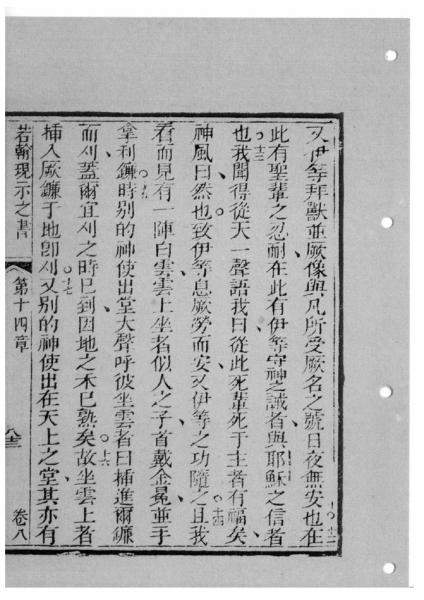 又伊等拜獸並厥像與凡所受厥名之號日夜無安也在
十二
此有聖輩之忍耐在此有伊等守神之誡者與耶穌之信者
十三
也我聞得從天一聲語我曰從此死輩死于主者有福矣
神風曰然也致伊等息厥勞而安又伊等之功隨之且我
十四
看而見有一陣白雲雲上坐者似人之子首戴金冕並手
拿利鐮時別的神使出堂大聲呼彼坐雲者曰插進爾鐮
十五
而刈蓋爾宜刈之時已到因地之禾已熟矣故坐雲上者
十六
插入厥鐮于地卽刈又別的神使出在天上之堂其亦有
十七
若翰現示之書
第十四章
八三
卷八